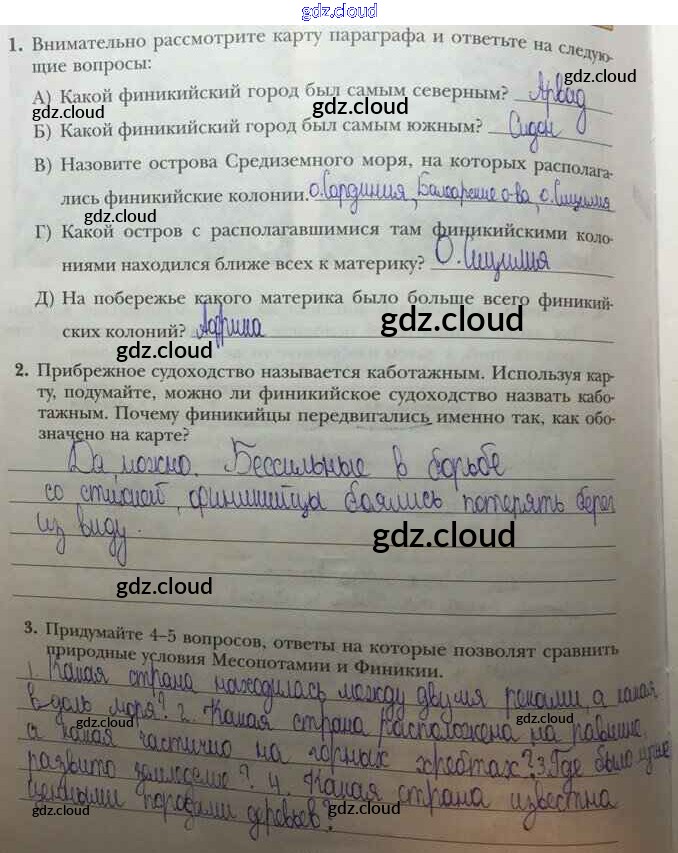 gdz.cloud
1. Внимательно рассмотрите карту параграфа и ответьте на следую-
щие вопросы:
gdz.cloud
А) Какой финикийский город был самым северным? Арвад
gdz.cloud
gdz.cloud
Б) Какой финикийский город был самым южным? Сидон
В) Назовите острова Средиземного моря, на которых распола-
гались финикийские колонии. о.Сардиния, Балеарские о-ва, о. Сицилия
gdz.cloud
Г) Какой остров с располагавшимися там финикийскими коло-
ниями находился ближе всех к материку? О.Сицилия
Д) На побережье какого материка было больше всего финикий-
ских колоний? Африка
gdz.cloud
gdz.cloud
2. Прибрежное судоходство называется каботажным. Используя кар-
ту, подумайте, можно ли финикийское судоходство назвать кабо-
тажным. Почему финикийцы передвигались именно так, как обо-
значено на карте?
Да, можно. Бессильные в борьбе
со стихией, финикийцы боялись потерять берег
из виду.
gdz.cloud
gdz.cloud
3. Придумайте 4–5 вопросов, ответы на которые позволят сравнить
природные условия Месопотамии и Финикии.
1. Какая страна находилась между двумя реками, а какая
вдоль моря? 2. Какая страна расположена на равнине,
gdz.cloud
gdz.cloud
а какая частично на горных хребтах? 3. Где было лучше
развито земледелие? 4. Какая страна известна
ценными породами деревьев?
gdz.cloud
gdz.cloud